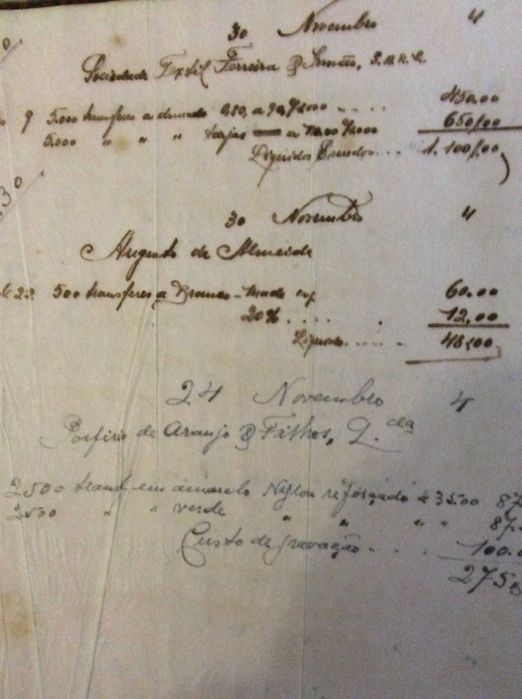 30 Novembro 4
Sociedade Textil Ferreira & Simões, S.A.R.L.
9 5.000 transferes a dourado 90,/1000 .... 450.00
5.000 " " " tarjas a /1000 650,00
Liquidos Escudos ... 1.100,00
30 Novembro 4
Augusto de Almeida
22 500 transferes a Branco - Made 60.00
20% .... 12,00
Liquido ..... 48,00
24 Novembro 4
Porfirio de Araujo & Filhos, L.da
2500 transf. em amarelo Nylon reforçado a 35.00 87
2500 " " verde " " " " 87.
Custo de gravação ... 100.
275